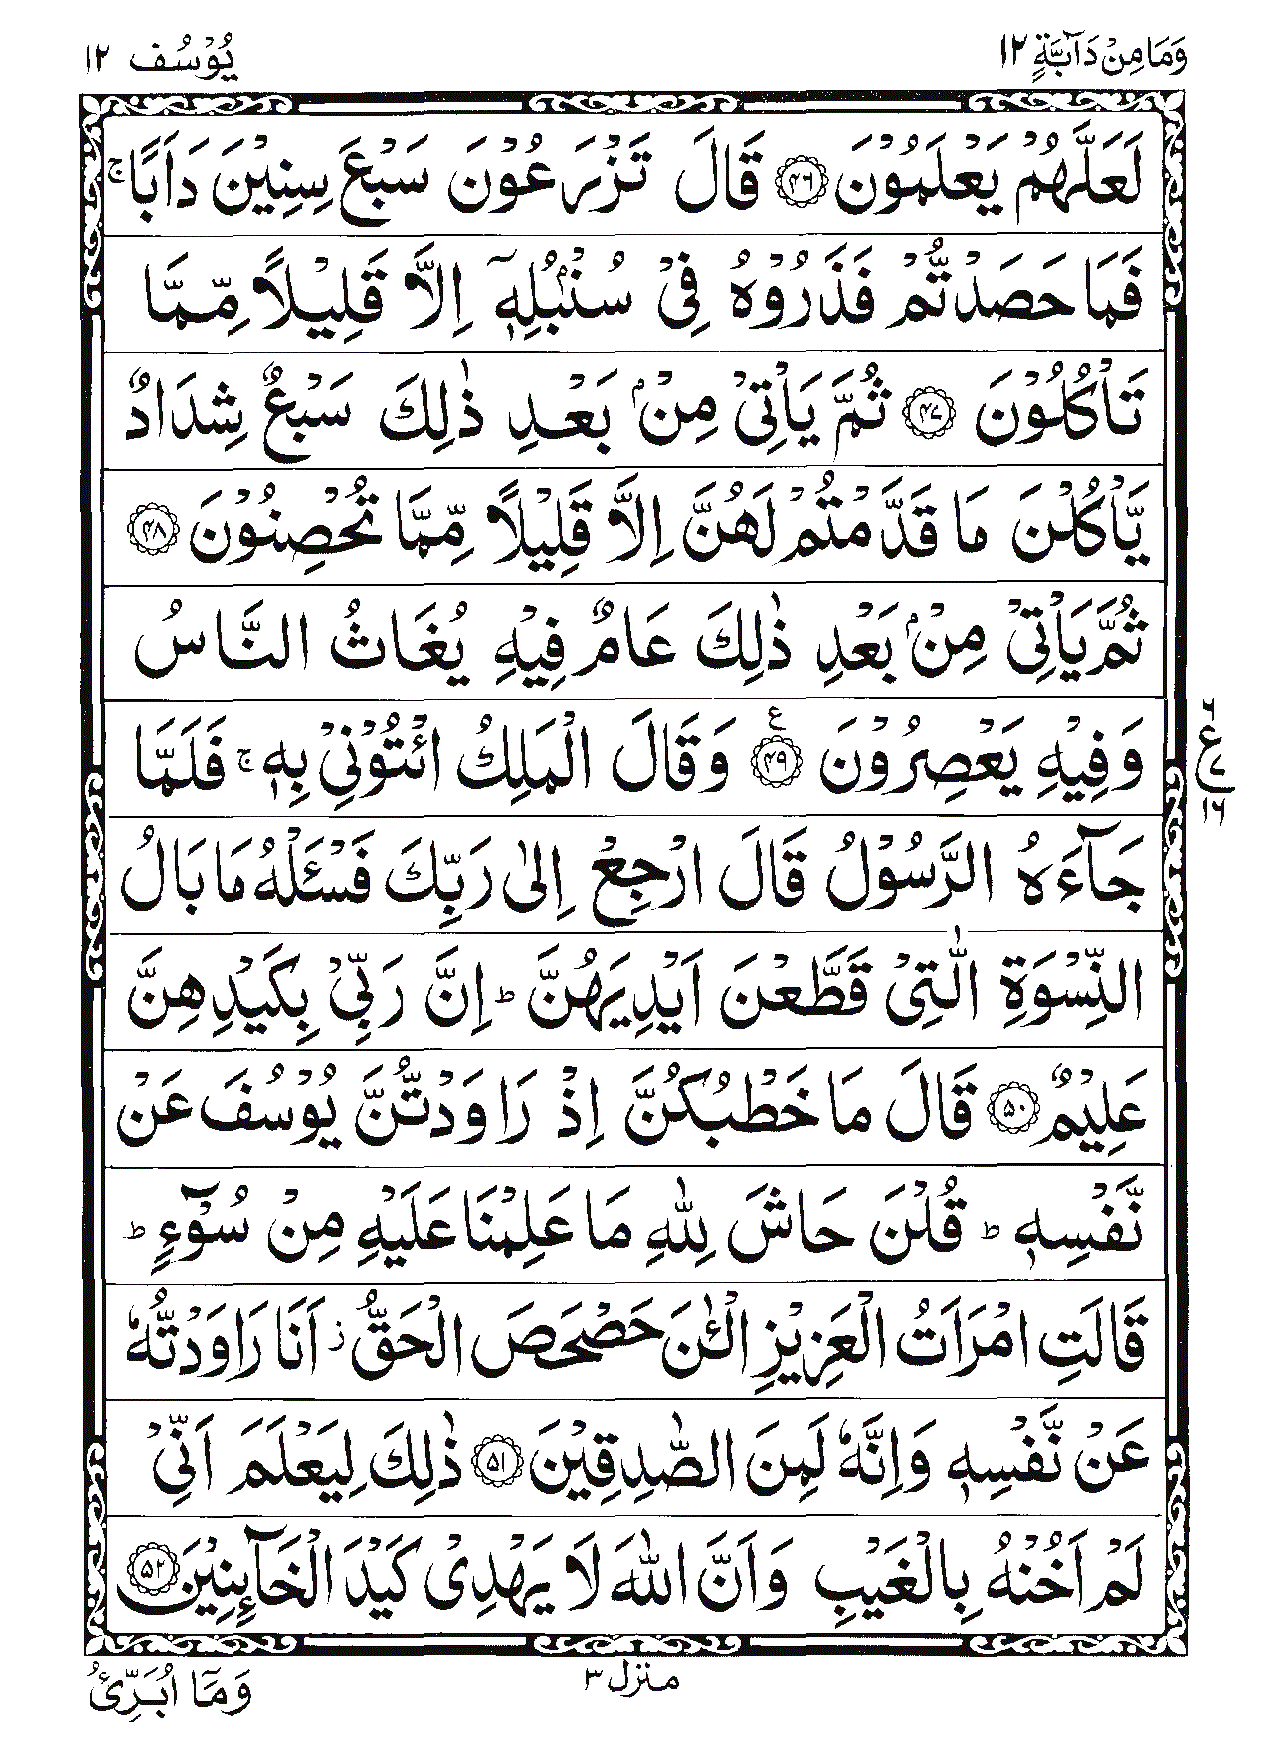 وَمَا مِنْ دَآبَّةٍ ١٢
يُوْسُف ١٢
لَعَلَّهُمْ يَعْلَمُوْنَ ﴿۴۶﴾ قَالَ تَزْرَعُوْنَ سَبْعَ سِنِيْنَ دَاَبًا ۚ
فَمَا حَصَدْتُّمْ فَذَرُوْهُ فِيْ سُنْۢبُلِهٖٓ اِلَّا قَلِيْلًا مِّمَّا
تَاْكُلُوْنَ ﴿۴۷﴾ ثُمَّ يَاْتِيْ مِنْۢ بَعْدِ ذٰلِكَ سَبْعٌ شِدَادٌ
يَّاْكُلْنَ مَا قَدَّمْتُمْ لَهُنَّ اِلَّا قَلِيْلًا مِّمَّا تُحْصِنُوْنَ ﴿۴۸﴾
ثُمَّ يَاْتِيْ مِنْۢ بَعْدِ ذٰلِكَ عَامٌ فِيْهِ يُغَاثُ النَّاسُ
وَفِيْهِ يَعْصِرُوْنَ ﴿۴۹﴾ ع وَقَالَ الْمَلِكُ ائْتُوْنِيْ بِهٖ ۚ فَلَمَّا
٢
ع
٧
١٦
جَآءَهُ الرَّسُوْلُ قَالَ ارْجِعْ اِلٰى رَبِّكَ فَسْـَٔلْهُ مَا بَالُ
النِّسْوَةِ الّٰتِيْ قَطَّعْنَ اَيْدِيَهُنَّ ؕ اِنَّ رَبِّيْ بِكَيْدِهِنَّ
عَلِيْمٌ ﴿۵۰﴾ قَالَ مَا خَطْبُكُنَّ اِذْ رَاوَدْتُّنَّ يُوْسُفَ عَنْ
نَّفْسِهٖ ؕ قُلْنَ حَاشَ لِلّٰهِ مَا عَلِمْنَا عَلَيْهِ مِنْ سُوْٓءٍ ؕ
قَالَتِ امْرَاَتُ الْعَزِيْزِ الْـٰٔنَ حَصْحَصَ الْحَقُّ ز اَنَا رَاوَدْتُّهٗ
عَنْ نَّفْسِهٖ وَاِنَّهٗ لَمِنَ الصّٰدِقِيْنَ ﴿۵۱﴾ ذٰلِكَ لِيَعْلَمَ اَنِّيْ
لَمْ اَخُنْهُ بِالْغَيْبِ وَاَنَّ اللّٰهَ لَا يَهْدِيْ كَيْدَ الْخَآئِنِيْنَ ﴿۵۲﴾
منزل ٣
وَمَآ اُبَرِّئُ